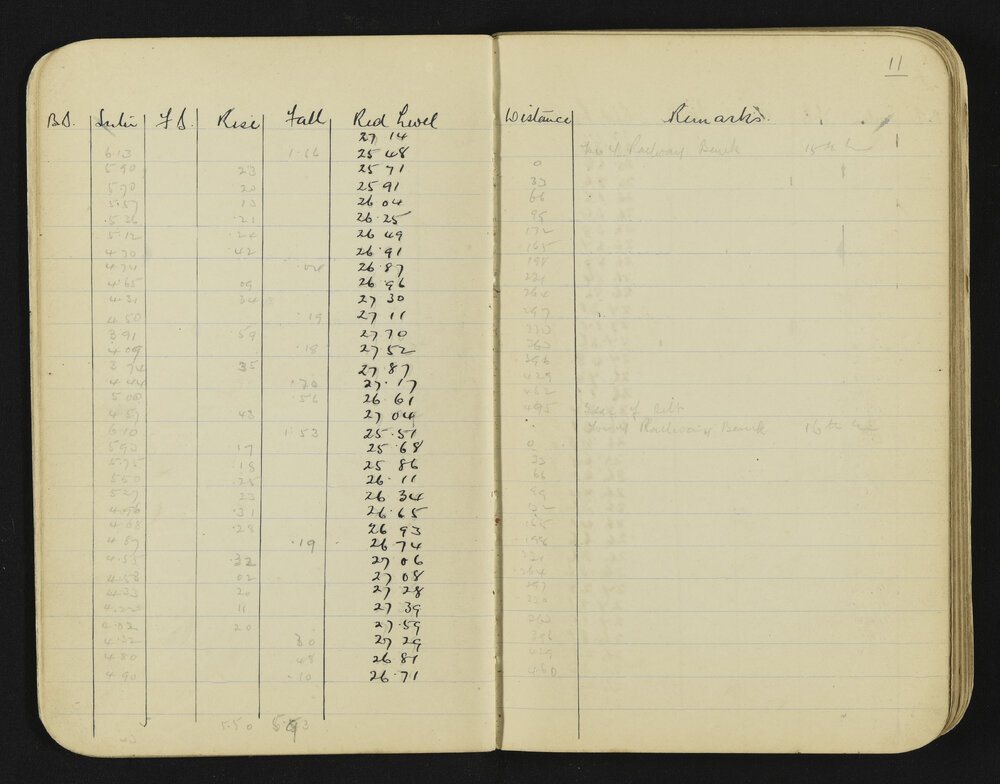 11
B.S. Inter F.S. Rise Fall Red Level Distance Remarks.
27 14
6.13 1.66 25 48 Railway Bank 15th
5.90 23 25 71 0
5.70 20 25 91 33
5.57 13 26 04 66
5.36 .21 26.25 95
5.12 .24 26 49 132
4.70 .42 26.91 165
4.74 .04 26.87 198
4.65 09 26 96 231
4.31 34 27 30 264
4.50 .19 27 11 297
3.91 .59 27 70 330
4.09 .18 27 52 363
3.74 35 27.87 396
4.44 .70 27.17 429
5.00 .56 26 61 462
4.57 43 27 04 495
6.10 1.53 25.51 Railway Bank 16th
5.93 17 25.68 0
5.75 .18 25 86 33
5.50 .25 26.11 66
5.27 23 26 34 99
4.96 .31 26.65
4.68 .28 26 93 165
4.87 .19 26 74 198
4.55 .32 27 06 231
4.53 02 27 08 264
4.33 20 27 28 297
4.22 11 27 39 330
4.02 20 27.59 363
4.32 30 27 29 396
4.80 48 26 81 429
4.90 .10 26.71 460
5.50